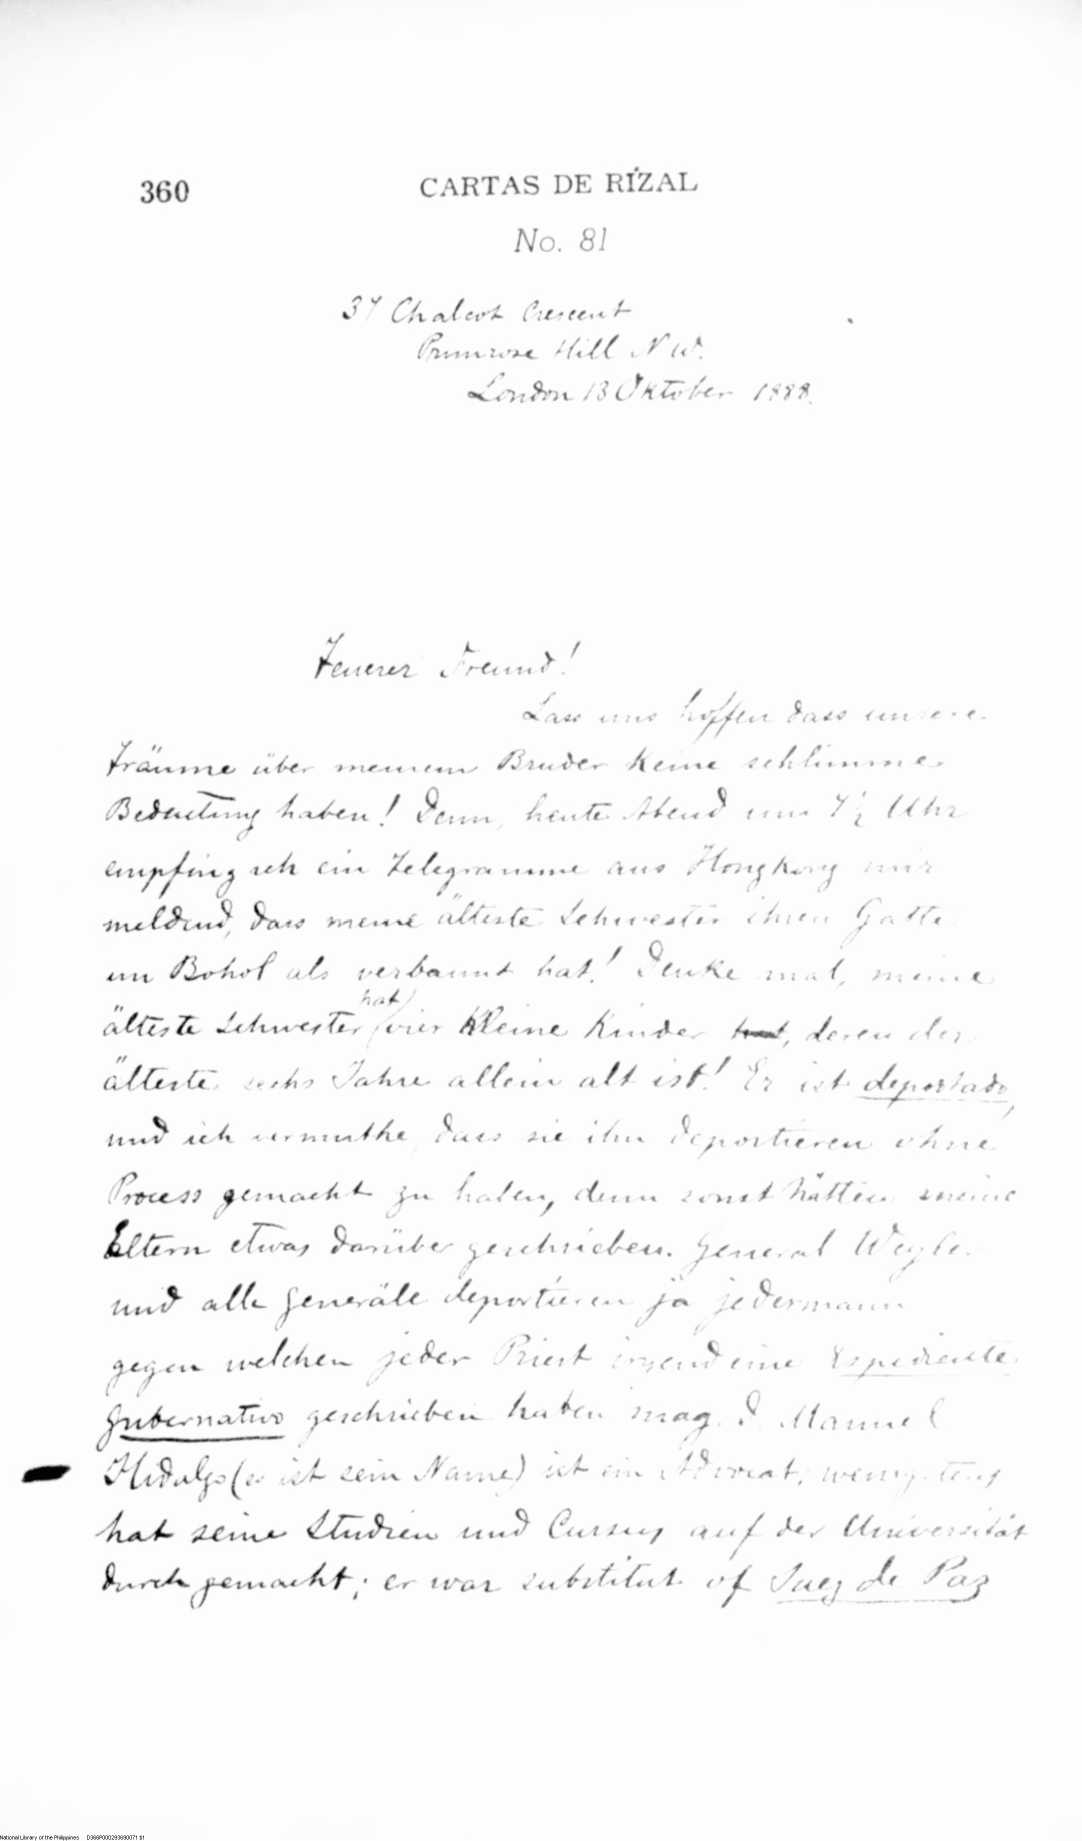 360
CARTAS DE RÍZAL
No. 81
37 Chalcot Crescent
Primrose Hill N W.
London 13 Oktober 1888.
Teuerer Freund!
Lass uns hoffen dass unsere
Träume über meinem Bruder keine schlimme
Bedeutung haben! Denn, heute Abend um 7½ Uhr
empfing ich ein Telegramme aus Hongkong mir
meldend, dass meine älteste Schwester ihren Gatte
im Bohol als verbannt hat! Denke mal, meine
älteste Schwester hat vier kleine Kinder hat, deren der
älteste sechs Jahre allein alt ist! Er ist deportado,
und ich vermuthe, dass sie ihn deportieren ohne
Process gemacht zu haben, denn sonst hätten meine
Eltern etwas darüber geschrieben. General Weyler
und alle Generäle deportieren ja jedermann
gegen welchen jeder Priest irgend eine Expediente
gubernativo geschrieben haben mag. D. Manuel
Hidalgo (so ist sein Name) ist ein Advocat, wenigstens
hat seine Studien und Cursus auf der Universität
durch gemacht; er war substitut of Juez de Paz
National Library of the Philippines